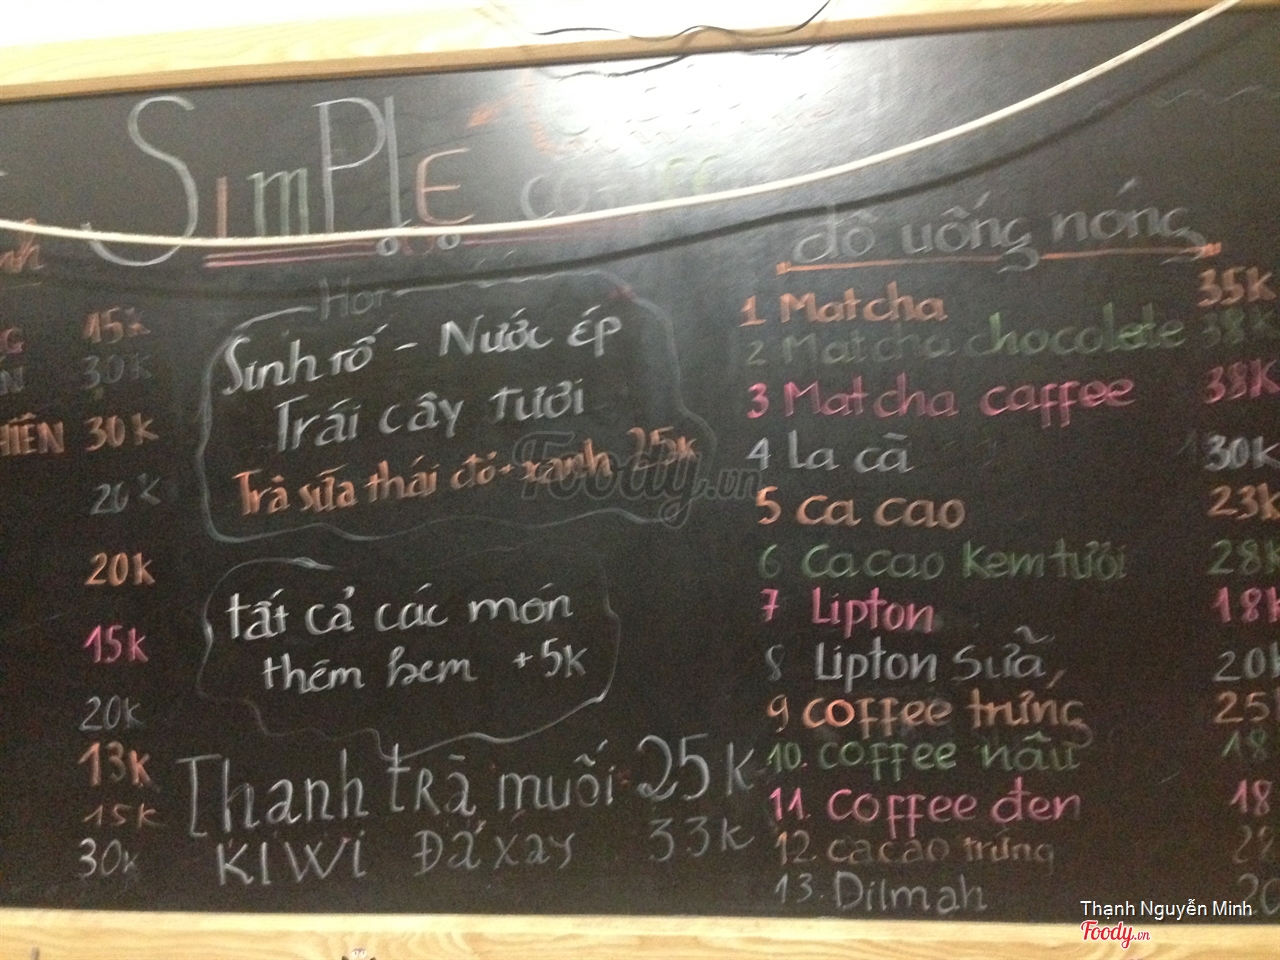 SimPlE COFFEE
nh
15k
30k
HIÊN 30k
20k
20k
15k
20k
13k
15k
30k
Hot
Sinh tố - Nước ép
Trái cây tươi
Trà sữa thái đỏ + xanh 25k
tất cả các món
thêm kem +5k
Thanh trà muối 25k
KIWi Đá xay 33k
đồ uống nóng
1 Matcha 35k
2 Matcha chocolete 38k
3 Matcha caffee 38k
4 la cà 30k
5 ca cao 23k
6 Cacao kem tươi 28k
7 Lipton 18k
8 Lipton Sữa 20k
9 coffee trứng 25
10. coffee nâu 18
11. coffee đen 18
12. cacao trứng 28
13. Dilmah 20
Foody.vn
Thạnh Nguyễn Minh
Foody.vn